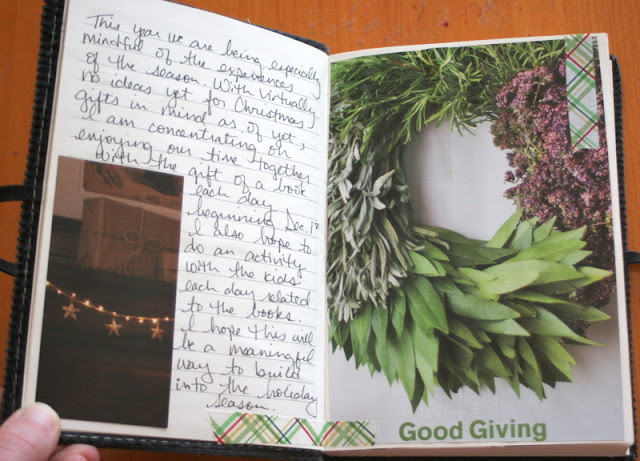 This year we are being especially
mindful of the experiences
of the season. With virtually
no ideas yet for Christmas
gifts in mind as of yet,
I am concentrating on
enjoying our time together
with the gift of a book
each day
beginning Dec. 1st
I also hope to
do an activity
with the kids
each day related
to the books.
I hope this will
be a meaningful
way to build
into the holiday
season.
Good Giving